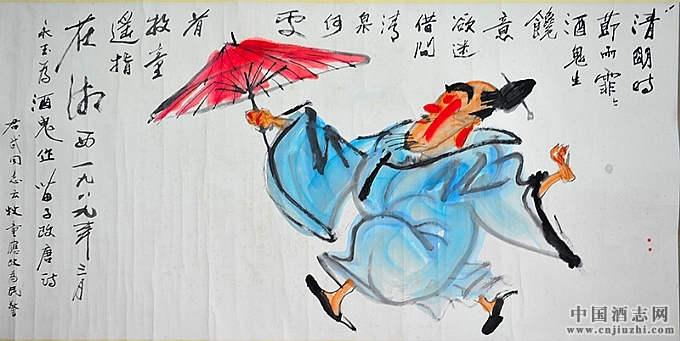 清明时
节雨霏霏
酒鬼生
馋
意
欲迷
借问
清
泉
何
处
有
牧童
遥指
在湘西一九八九年三月
永玉为酒鬼作 笛子改唐诗
君武同志云牧童应改为民警
中国酒志网
www.cnjiuzhi.com